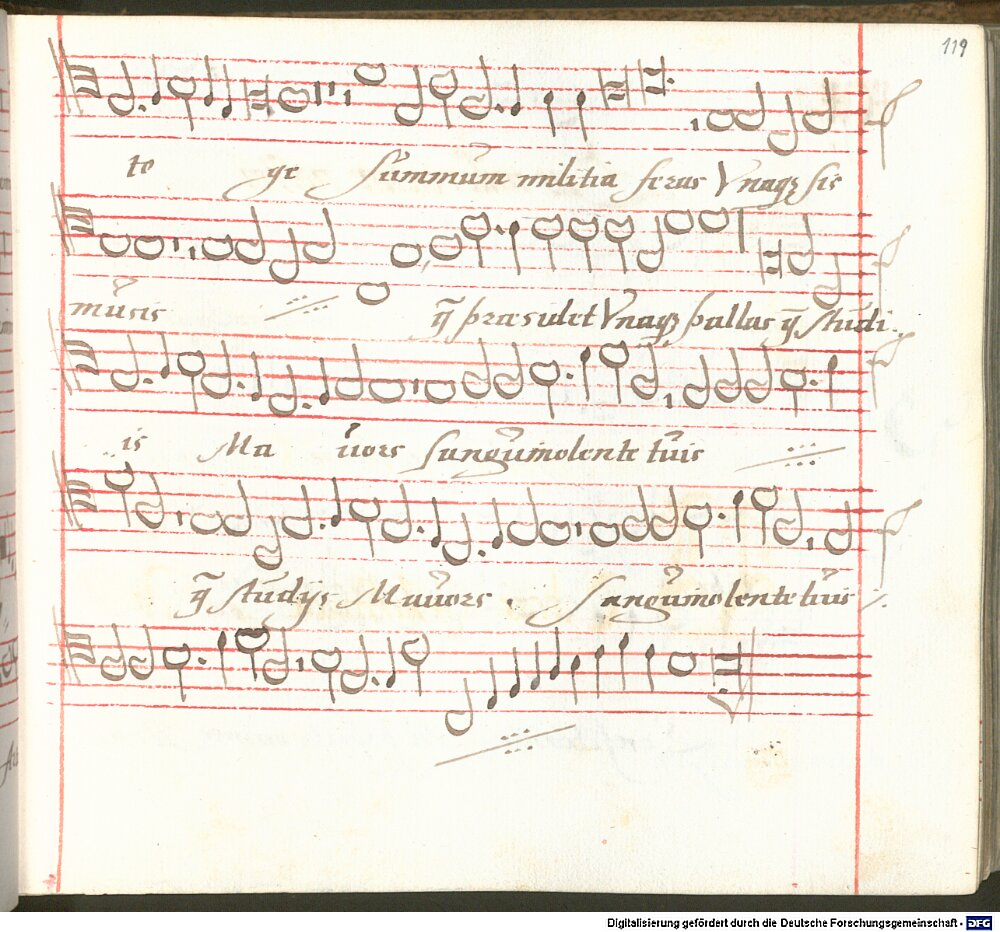 119
to ge summum militia feras Vnaqȝ sis
musis q̄ præsidet Vnaqȝ pallas q̄ studi
is Ma uors sanguinolente tuis
q̄ studijs Mauors Sanguinolente tuis
Digitalisierung gefördert durch die Deutsche Forschungsgemeinschaft - DFG